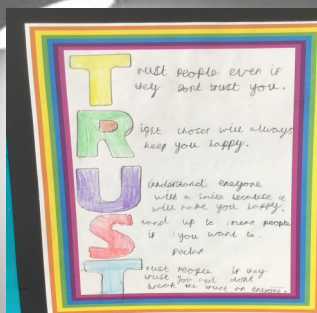 Trust people even if
they dont trust you.
Right choser will always
keep you happy.
Understand everyone
with a smile because it
will make you happy.
Stand up to mean people
if you want to.
Trust people if they
trust you and dont
break the trust on anyone.